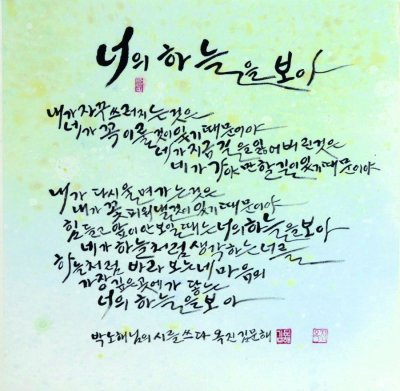 너의 하늘을 보아
내가 자꾸 쓰러지는 것은
네가 꼭 이룰 것이 있기 때문이야
네가 지금 길을 잃어버린 것은
네가 가야만 할 길이 있기 때문이야
내가 다시 울며 가는 것은
내가 꽃 피워 낼 것이 있기 때문이야
힘들고 앞이 안 보일 때는 너의 하늘을 보아
네가 하늘처럼 생각하는 너를
하늘처럼 바라 보는 네 마음의
가장 깊은 곳에 가 닿는
너의 하늘을 보아
박노해님의 시를 쓰다 옥진 김문해